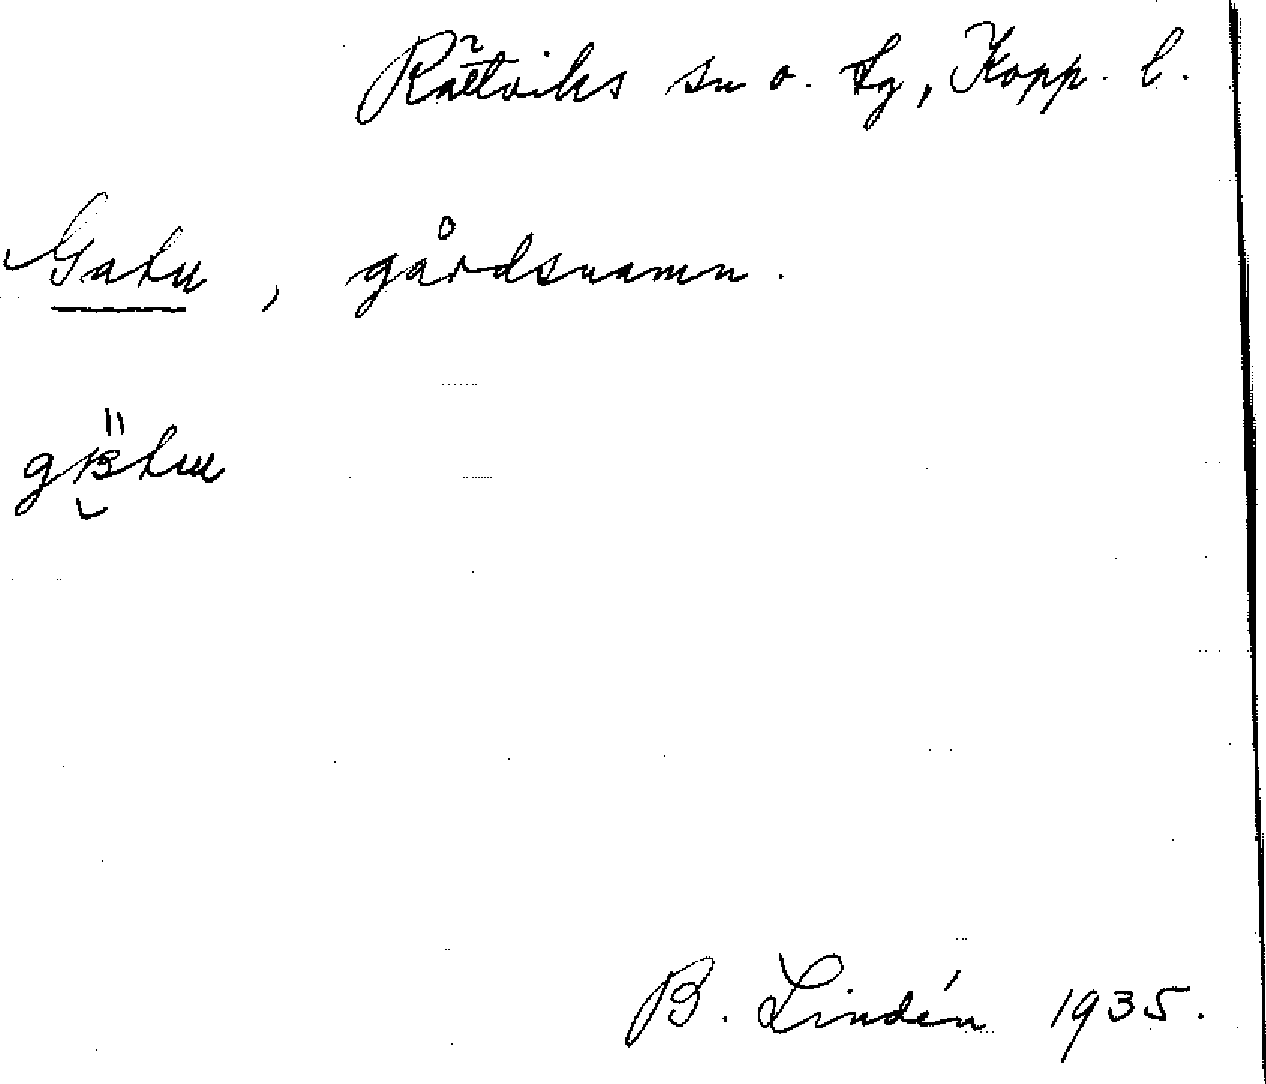 Rättviks sn o. tg, Kopp. l.
Gatu, gårdsnamn.
B. Lindén 1935.